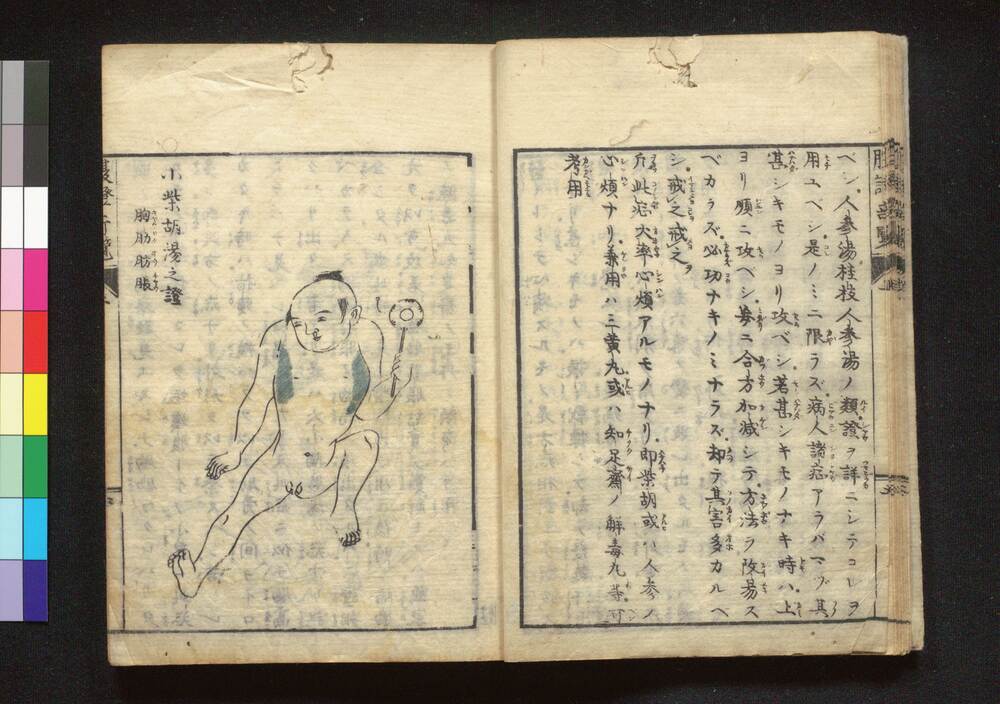 ベシ人參湯桂枝人參湯ノ類證ヲ詳ニシテコレヲ
用ユベシ是ノミニ限ラズ病人諸症アラバマヅ其
甚シキモノヨリ攻ベシ若甚シキモノナキ時ハ上
ヨリ順ニ攻ベシ毎ニ合方加減シテ方法ヲ改易ス
ベカラズ必功ナキノミナラズ却テ其害多カルベ
シ戒之戒之ヲ
此症大率心煩アルモノナリ即柴胡或ハ人参ノ
心煩ナリ兼用ハ三黄丸或ハ知足齋ノ解毒丸等可
考用
小柴胡湯之證
胸肋肪脹